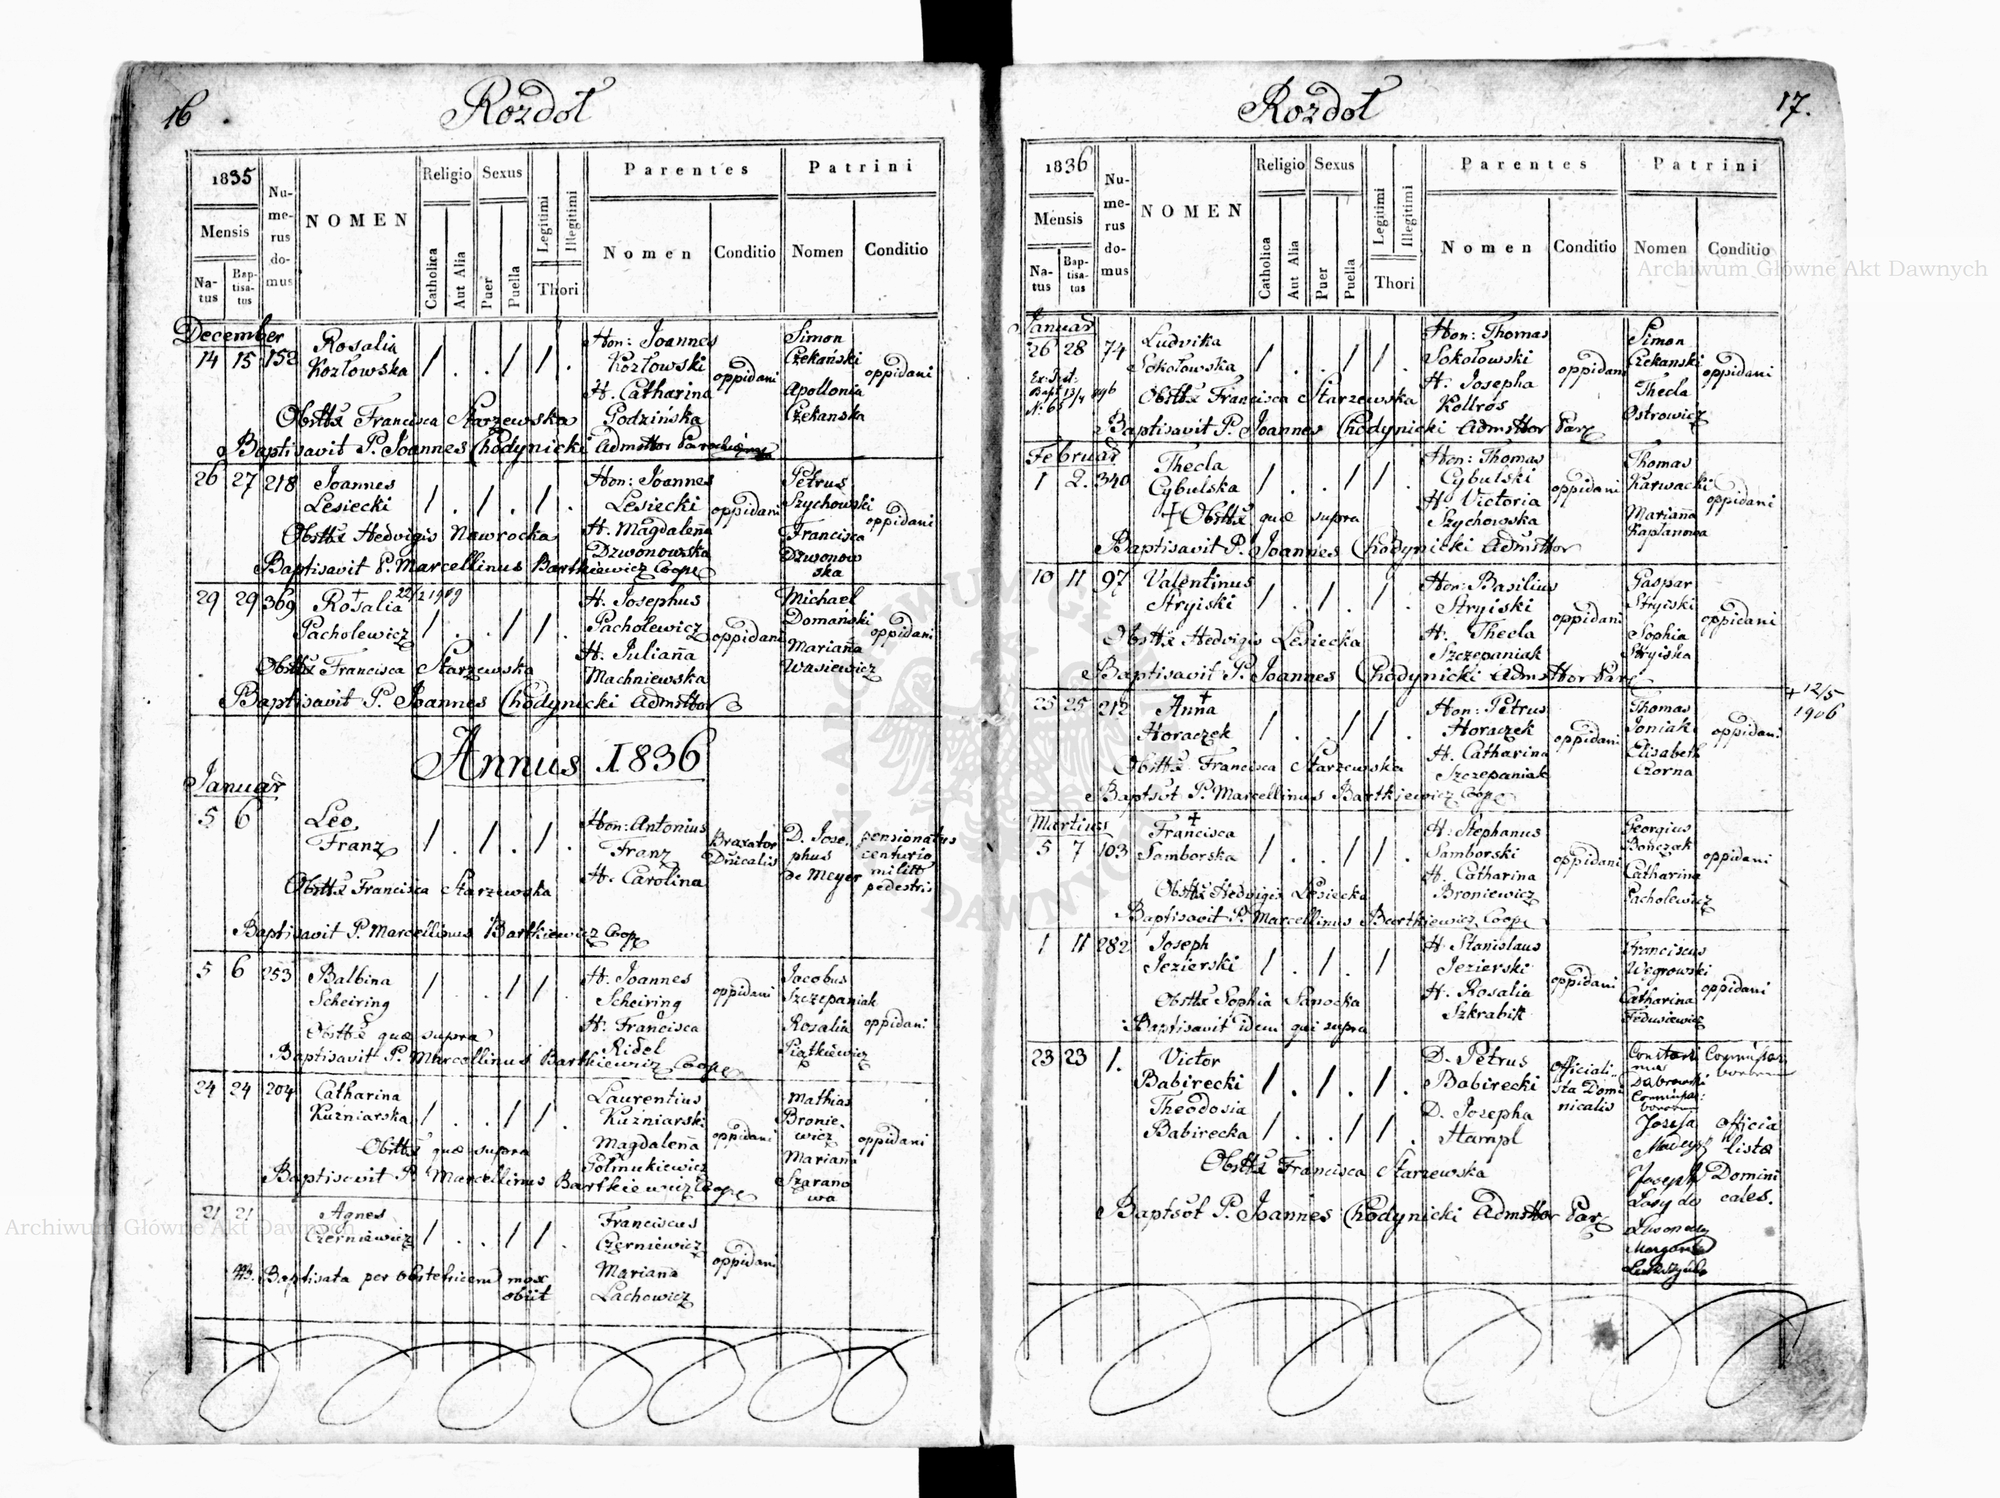 16
Rozdół
1835
Mensis
Na-
tus
Bap-
tisa-
tus
Nu-
me-
rus
do-
mus
NOMEN
Religio
Catholica
Aut Alia
Sexus
Puer
Puella
Legitimi
Illegitimi
Thori
Parentes
Nomen
Conditio
Patrini
Nomen
Conditio
December
14 15 152
Rosalia
Kozłowska
Hon: Joannes
Kozłowski
H. Catharina
Godzińska
oppidani
Simon
Czekański
Apollonia
Czekanska
oppidani
Obsttx Francisca Starzewska
Baptisavit P. Joannes Chodynicki Admsttor
26 27 218
Joannes
Lesiecki
Hon: Joannes
Lesiecki
H. Magdalena
Dzwonowska
oppidani
Petrus
Szychowski
Francisca
Dzwonow
ska
oppidani
Obsttx Hedvigis Nawrocka
Baptisavit P. Marcellinus Bartkiewicz Coope
29 29 369
Rosalia 22/2 1909
Pacholewicz
H. Josephus
Pacholewicz
H. Julianna
Machniewska
oppidani
Michael
Domański
Marianna
Wasiewicz
oppidani
Obsttx Francisca Starzewska
Baptisavit P. Joannes Chodynicki Admsttor
Annus 1836
Januar
5 6
Leo
Franz
Hon: Antonius
Franz
H. Carolina
Braxator
Dnicalis
D. Jose-
phus
de Meyer
pensionatus
centurio
militt
pedestris
Obsttx Francisca Starzewska
Baptisavit P. Marcellinus Bartkiewicz Coope
5 6 253
Balbina
Scheiring
H. Joannes
Scheiring
H. Francisca
Ridel
oppidani
Jacobus
Szczepaniak
Rosalia
Piątkiewicz
oppidani
Obsttx quæ supra
Baptisavit P. Marcellinus Bartkiewicz Coope
24 24 204
Catharina
Kuzniarska
Laurentius
Kuzniarski
Magdalena
Połmukiewicz
oppidani
Mathias
Bronie-
wicz
Marianna
Szarano
wa
oppidani
Obsttx quæ supra
Baptisavit P. Marcellinus Bartkiewicz Coope
21 21
Agnes
Czerniewicz
Franciscus
Czerniewicz
Marianna
Lachowicz
oppidani
NB. Baptisata per obstetricem mox
obiit
17.
Rozdół
1836
Mensis
Na-
tus
Bap-
tisa-
tus
Nu-
me-
rus
do-
mus
NOMEN
Religio
Catholica
Aut Alia
Sexus
Puer
Puella
Legitimi
Illegitimi
Thori
Parentes
Nomen
Conditio
Patrini
Nomen
Conditio
Januar
26 28 74
Ludvika
Sokołowska
Hon: Thomas
Sokołowski
H. Josepha
Kollros
oppidani
Simon
Czekanski
Thecla
Ostrowicz
oppidani
Obsttx Francisca Starzewska
Baptisavit P. Joannes Chodynicki Admsttor Par
Februar
1 2. 340
Thecla
Cybulska
Hon: Thomas
Cybulski
H. Victoria
Szychowska
oppidani
Thomas
Karwacki
Marianna
Kapłanowa
oppidani
+ Obsttx quæ supra
Baptisavit P. Joannes Chodynicki Admsttor
10 11 97
Valentinus
Stryiski
Hon: Basilius
Stryiski
H. Thecla
Szczepaniak
oppidani
Gaspar
Stryiski
Sophia
Stryiska
oppidani
Obsttx Hedvigis Lesiecka
Baptisavit P. Joannes Chodynicki Admsttor Par
25 25 212
Anna
Horaczek
Hon: Petrus
Horaczek
H. Catharina
Szczepaniak
oppidani
Thomas
Joniak
Elisabeth
Czorna
oppidani
+ 12/5
1906
Obsttx Francisca Starzewska
Baptsot P. Marcellinus Bartkiewicz Coope
Martius
5 7 103
Francisca
Samborska
H. Stephanus
Samborski
H. Catharina
Broniewicz
oppidani
Georgius
Bończak
Catharina
Pacholewicz
oppidani
Obsttx Hedvigis Lesiecka
Baptisavit P. Marcellinus Bartkiewicz Coope
1 11 282
Joseph
Jezierski
H. Stanislaus
Jezierski
H. Rosalia
Szkrabik
oppidani
Franciscus
Węgrowski
Catharina
Fedusiewicz
oppidani
Obsttx Sophia Sanocka
Baptisavit idem qui supra
23 23 1.
Victor
Babirecki
Theodosia
Babirecka
D. Petrus
Babirecki
D. Josepha
Hampl
Officiali-
sta Domi
nicalis
Dabrowski
Josefa
Joseph
officia
listæ
Domini
cales.
Obsttx Francisca Starzewska
Baptsot P. Joannes Chodynicki Admsttor Par
Archiwum Główne Akt Dawnych
Archiwum Główne Akt Dawnych